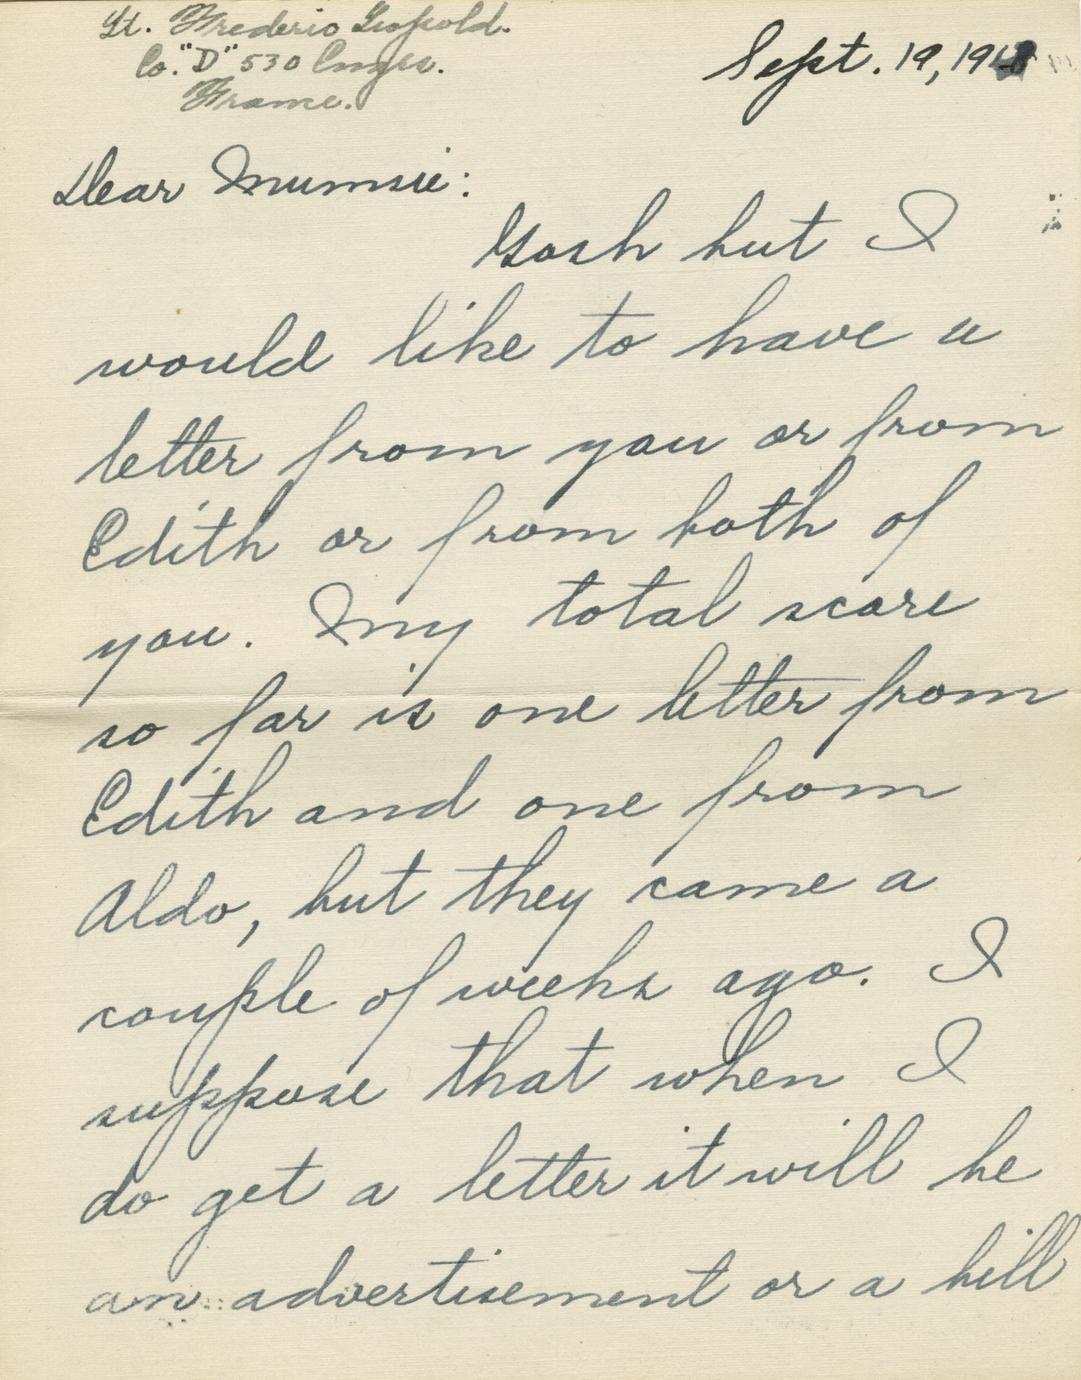 Lt. Frederic Leopold.
Co. "D" 530 Engrs.
France.
Sept. 19, 1918
Dear Mumsie:
Gosh but I
would like to have a
letter from you or from
Edith or from both of
you. My total score
so far is one letter from
Edith and one from
Aldo, but they came a
couple of weeks ago. I
suppose that when I
do get a letter it will be
an advertisement or a bill